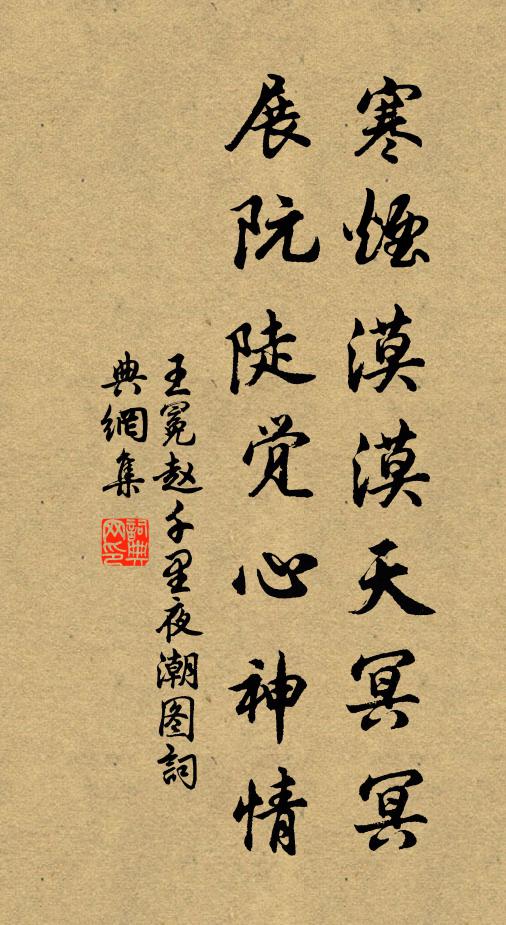 寒煙漠漠天冥冥
展阮陡觉心神情
王冕赵千里夜潮图詞
典網集
詞典网印